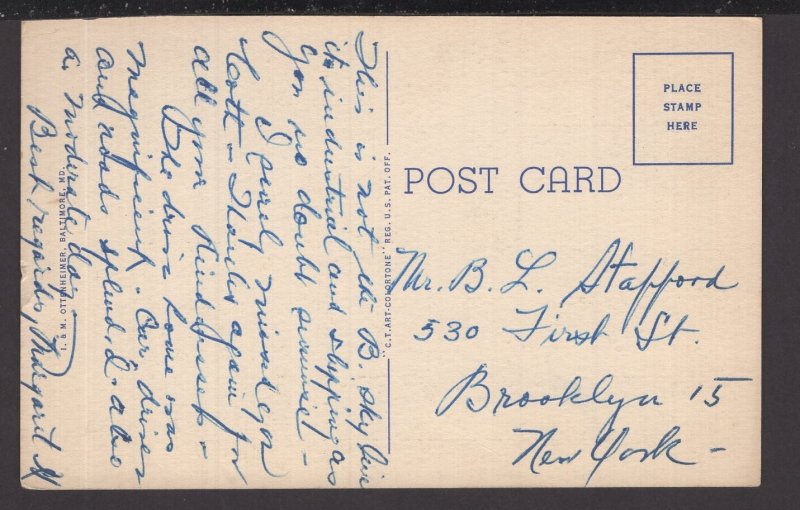 This is not the B. sky line
its industrial and shipping as
you no doubt surmise -
I surely missed you
both - Thanks again for
all your kindnesses -
The drive home was
magnificent. Our driver
and roads splendid - also
a moderate day
Best regards, Margaret H
I. & M. OTTENHEIMER, BALTIMORE, MD.
"C.T. ART-COLORTONE" REG. U.S. PAT. OFF.
POST CARD
PLACE
STAMP
HERE
Mr. B. L. Stafford
530 First St.
Brooklyn 15
New York -